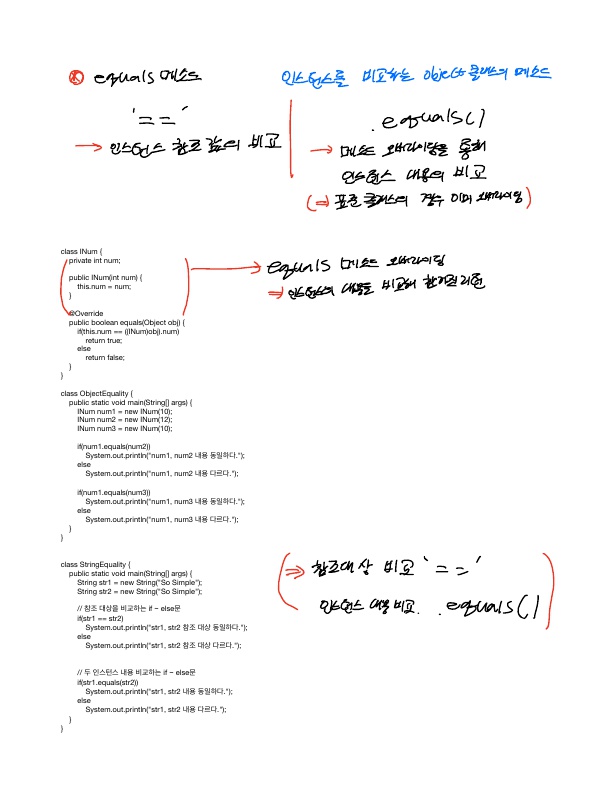 equals 메소드
인스턴스를 비교하는 object 클래스의 메소드
'=='
→ 인스턴스 참조 값의 비교
.equals()
→ 메소드 오버라이딩을 통해
인스턴스 내용의 비교
(⇒ 표준 클래스의 경우 이미 오버라이딩)
class INum {
private int num;
public INum(int num) {
this.num = num;
}
@Override
public boolean equals(Object obj) {
if(this.num == ((INum)obj).num)
return true;
else
return false;
}
}
→ equals 메소드 오버라이딩
⇒ 인스턴스의 내용을 비교해
class ObjectEquality {
public static void main(String[] args) {
INum num1 = new INum(10);
INum num2 = new INum(12);
INum num3 = new INum(10);
if(num1.equals(num2))
System.out.println("num1, num2 내용 동일하다.");
else
System.out.println("num1, num2 내용 다르다.");
if(num1.equals(num3))
System.out.println("num1, num3 내용 동일하다.");
else
System.out.println("num1, num3 내용 다르다.");
}
}
class StringEquality {
public static void main(String[] args) {
String str1 = new String("So Simple");
String str2 = new String("So Simple");
// 참조 대상을 비교하는 if – else문
if(str1 == str2)
System.out.println("str1, str2 참조 대상 동일하다.");
else
System.out.println("str1, str2 참조 대상 다르다.");
// 두 인스턴스 내용 비교하는 if – else문
if(str1.equals(str2))
System.out.println("str1, str2 내용 동일하다.");
else
System.out.println("str1, str2 내용 다르다.");
}
}
(⇒ 참조대상 비교 '=='
인스턴스 내용 비교. .equals())